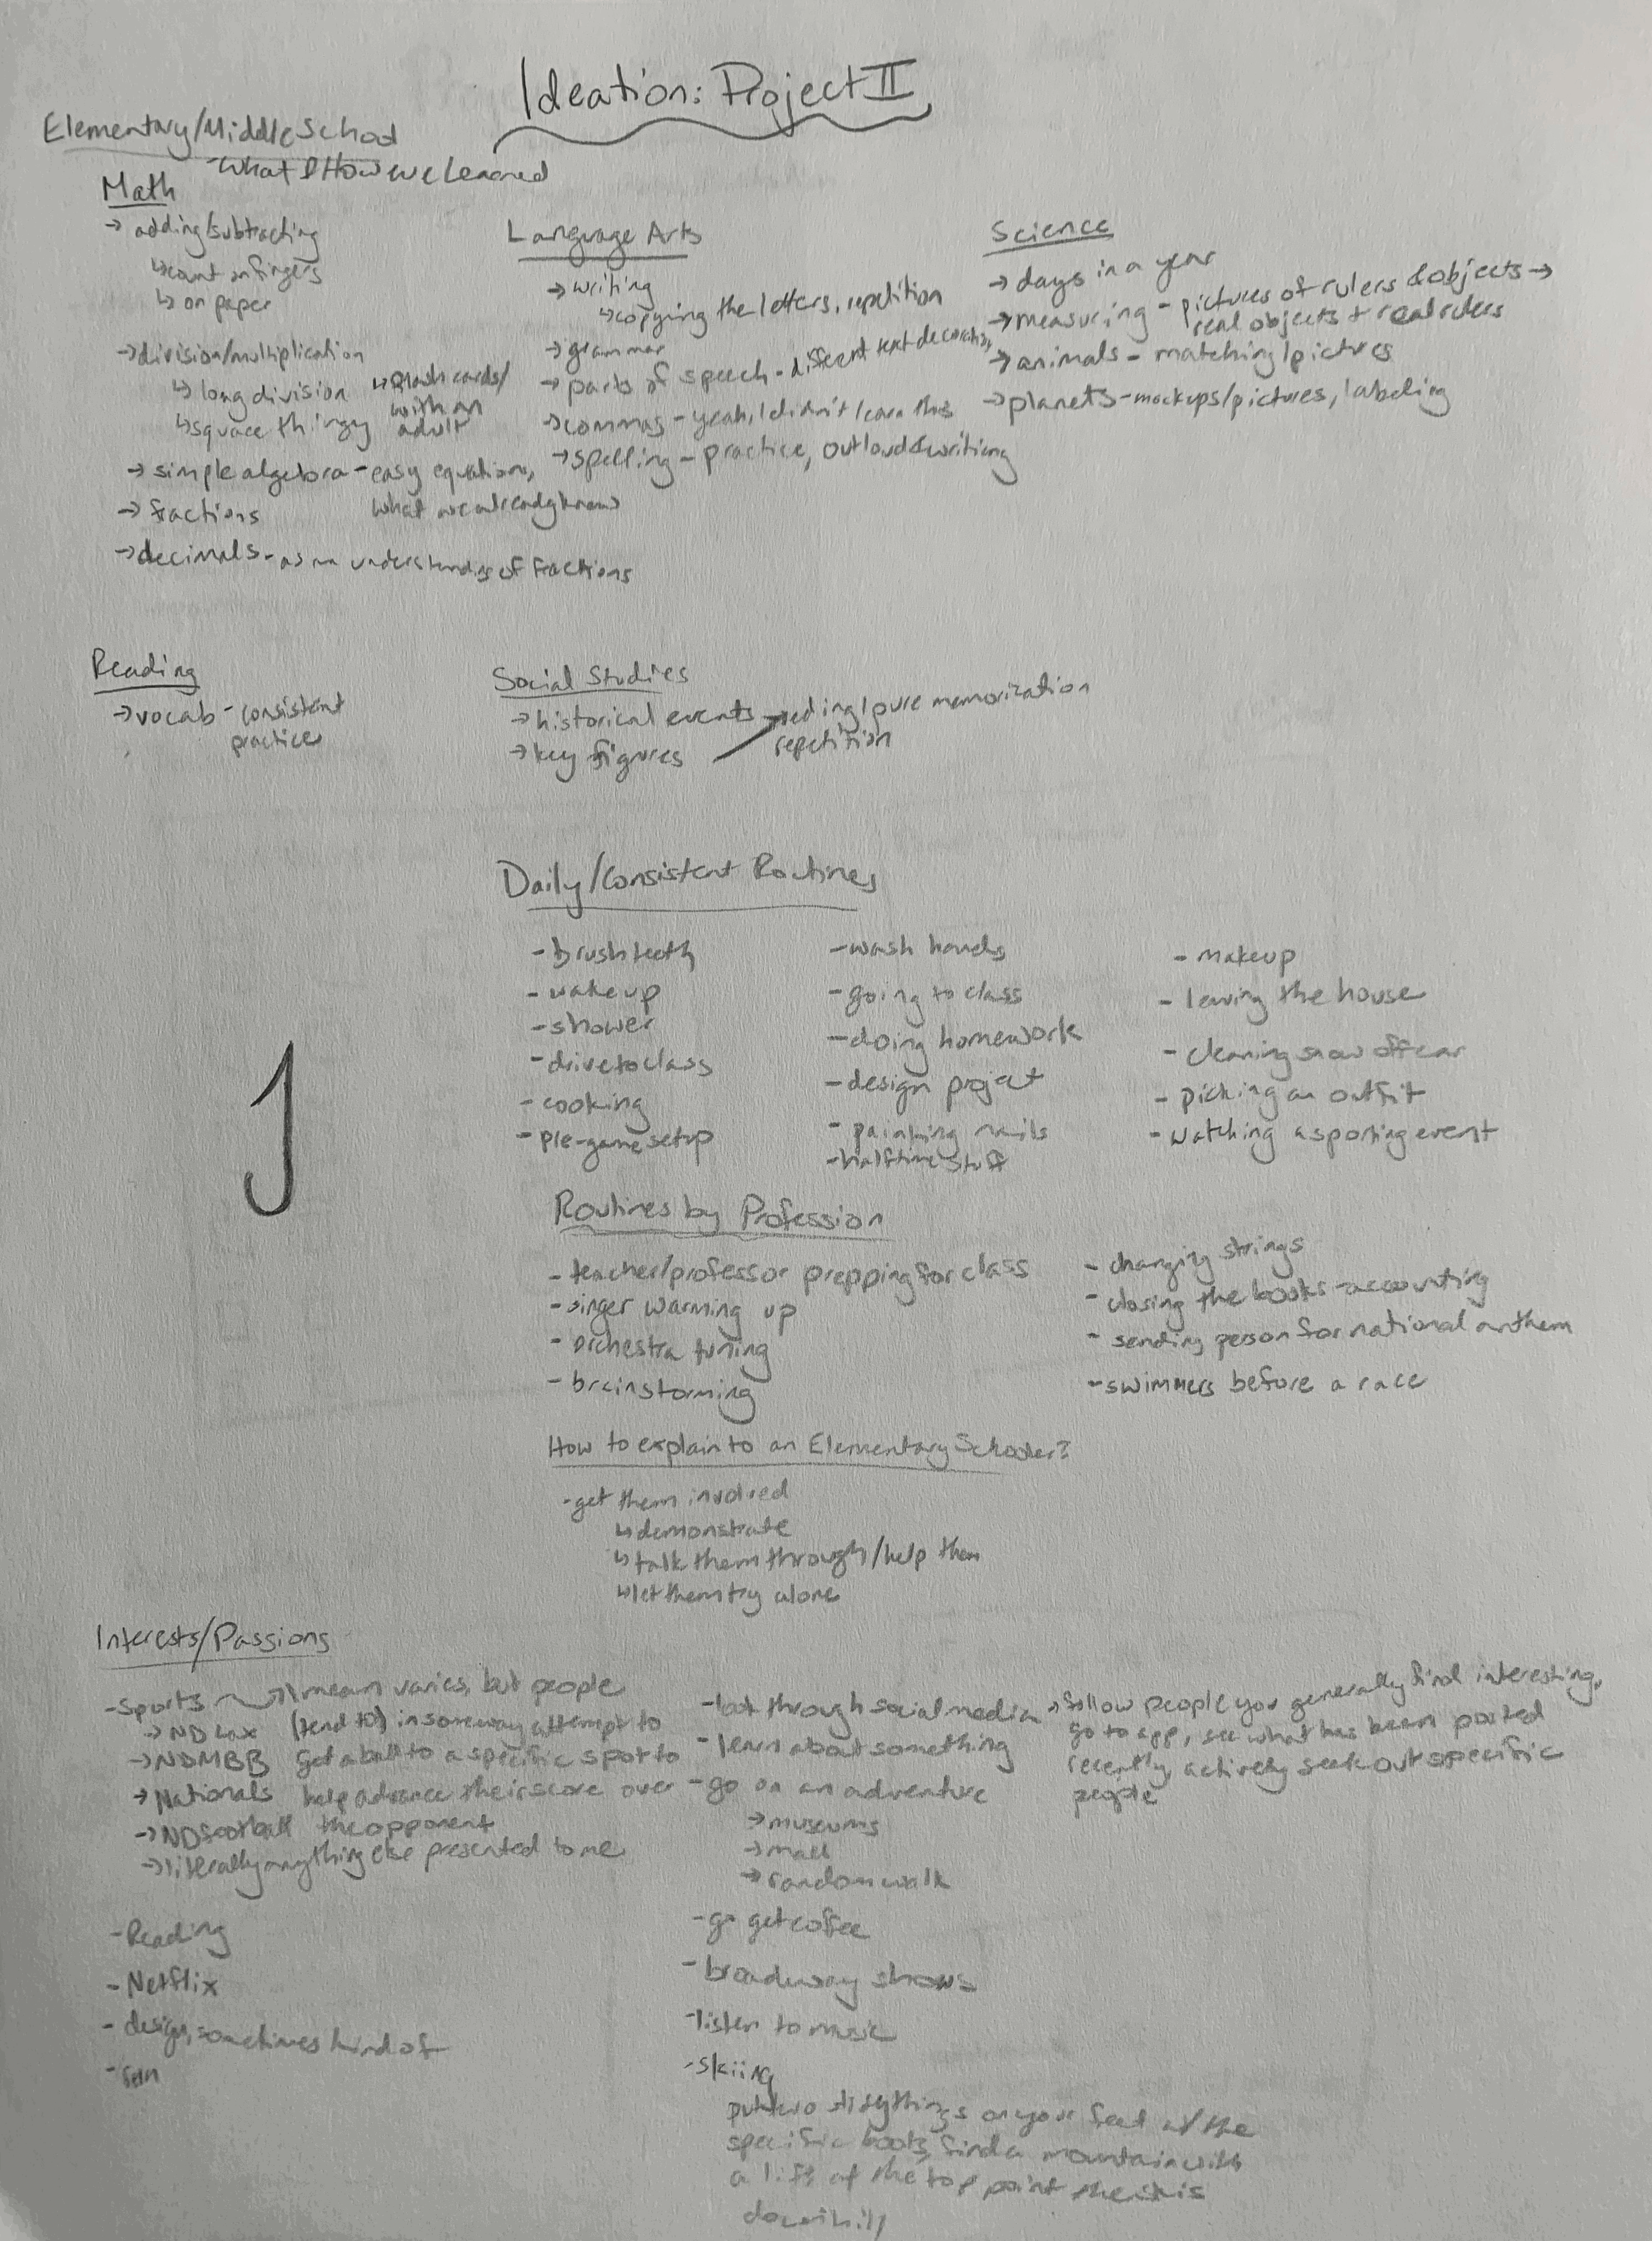 Ideation: Project II
Elementary/Middle School
- What & How we Learned
Math
→ adding/subtracting
↳ count on fingers
↳ on paper
→ division/multiplication
↳ long division
↳ square thingy
↳ flash cards/
with an
adult
→ simple algebra - easy equations,
what we already know
→ fractions
→ decimals - as an understanding of fractions
Language Arts
→ writing
↳ copying the letters, repetition
→ grammar
→ parts of speech - different text decoration
→ commas - yeah, I didn't learn this
→ spelling - practice, outloud & writing
Science
→ days in a year
→ measuring - pictures of rulers & objects →
real objects + real rulers
→ animals - matching/pictures
→ planets - mockups/pictures, labeling
Reading
→ vocab - consistent
practice
Social Studies
→ historical events → reding/pure memorization
→ key figures
repetition
Daily/Consistent Routines
- brush teeth
- wake up
- shower
- drive to class
- cooking
- pre-game setup
- wash hands
- going to class
- doing homework
- design project
- painting nails
- halftime stuff
- makeup
- leaving the house
- cleaning snow off car
- picking an outfit
- watching a sporting event
J
Routines by Profession
- teacher/professor prepping for class
- singer warming up
- orchestra tuning
- brainstorming
- changing strings
- closing the books - accounting
- sending person for national anthem
- swimmers before a race
How to explain to an Elementary Schooler?
- get them involved
↳ demonstrate
↳ talk them through/help them
↳ let them try alone
Interests/Passions
- sports → I mean varies, but people
→ ND Lax (tend to) in some way attempt to
→ NDMBB get a ball to a specific spot to
→ Nationals help advance their score over
→ ND football the opponent
→ literally anything else presented to me
- Reading
- Netflix
- design, sometimes kind of
- look through social media → follow people you generally find interesting,
go to app, see what has been posted
recently, actively seek out specific
people
- learn about something
- go on an adventure
→ museums
→ mall
→ random walk
- go get coffee
- broadway shows
- listen to music
- skiing
put two slidy things on your feet w/ the
specific boots, find a mountain with
a lift at the top point the skis
downhill